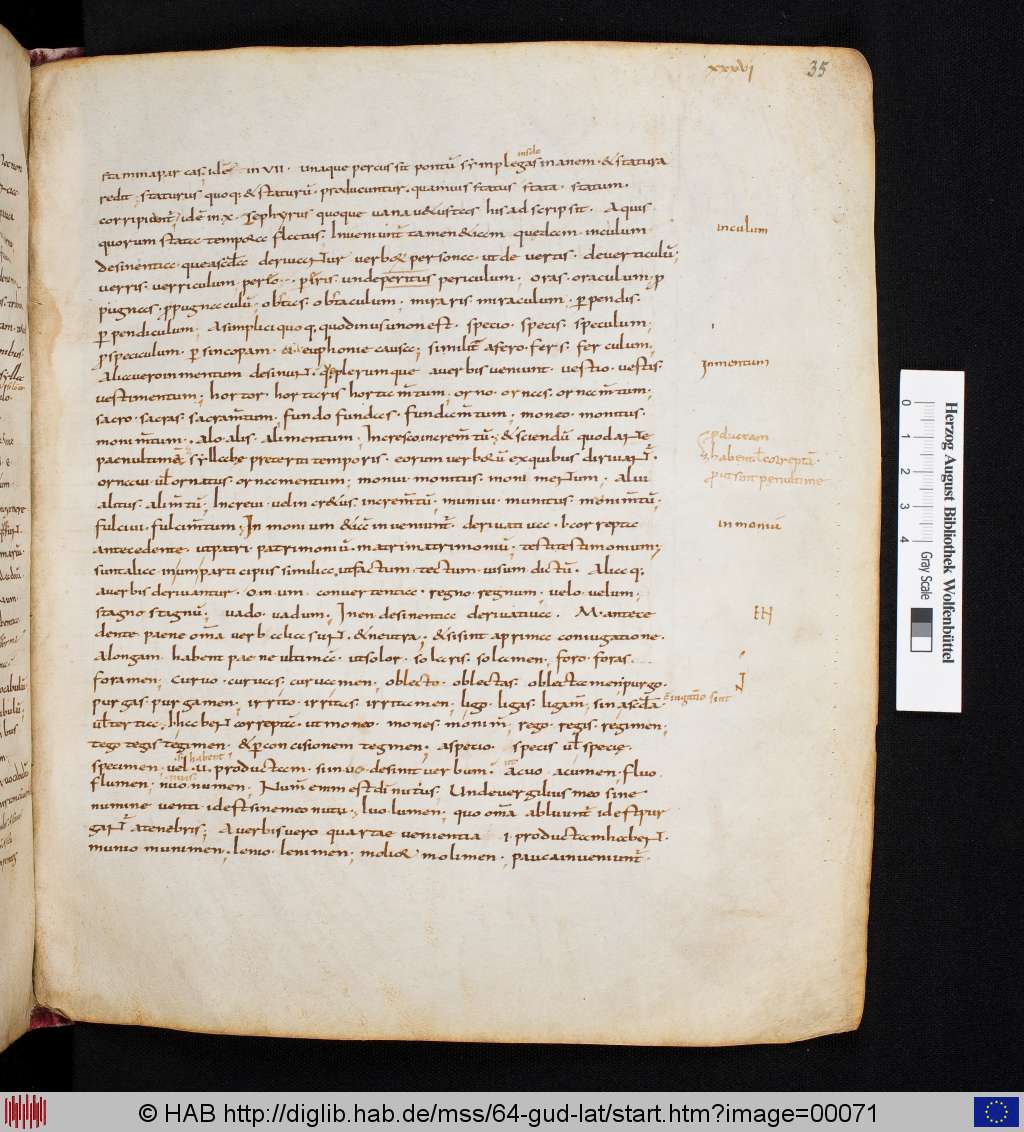 xxxvi 35
stamina parcas; idē in VII · unaque percussit pontū symplegas inanem · & statura
redit; staturus quoq; & staturū · producuntur · quamuis status stata · statum ·
corripiunt̄; idē in · x · Zephyrus quoque uana uetustas his adscripsit · A quis
quorum stata tempora flectus; Inueniunt̄ tamen & iam quaedam · in culum
desinentia · quae a secunda deriuantur uerborum persona · ut de uertis · deuerticulū;
uerris · uerriculum · periculum · unde peritus periculum; oras · oraculum · pro
pugnas · propugnaculū; obstas · obstaculum; miraris · miraculum; perpendis ·
perpendiculum; A simplici quoq; quod in usu non est · specio · specis · speculum;
prospeculum · per sincopam · euphoniae causa; similiter a fero · fers · ferculum;
Alia uero in mentum desinunt · quae plerumque a uerbis ueniunt · uestio · uestis ·
uestimentum; hortor · hortaris hortam̄tum; orno · ornas · ornam̄tum;
sacro · sacras · sacram̄tum; fundo fundas · fundam̄tum; moneo · monitus ·
monim̄tum · Alo · alis · alimentum; Incresco increm̄tū; & sciendū quod ante
paenultimā syllabā preteriti temporis · eorum uerborū ex quibus diriuant̄ ·
ornaui · ul ornatus · ornamentum; monui · monitus · monimentum; alui
alitus · alim̄tū; Increui · uel increuis increm̄tū; muniui · munitus · monim̄tū;
fulciui · fulcim̄tum; In monium & ia inueniunt̄ · deriuatiua · I · correpta
antecedente · ut patri patrimoniū · matri matrimoniū; testi testimonium;
sunt alia in um participiis similia · ut factum · tectum · uisum · dictū; Aliaq;
a uerbis deriuantur · o in um · conuertentia · regno · regnum; uelo · uelum;
stagno stagnū; uado · uadum; In en desinentia deriuatiua · M · antece
dente paene om̄a uerbalia sunt · & neutra; & si sint a prima coniugatione ·
A longam · habent paenultimā · ut solor · solaris · solamen; foro · foras
foramen; curuo · curuas · curuamen; oblecto · oblectas · oblectamen; purgo ·
purgas · purgamen; irrito · irritas · irritamen; ligo · ligas · ligam̄; sin a secd̄a
ul tertia · I · habent correptā · ut moneo · mones · monim̄; rego · regis · regimen;
tego tegis tegimen · & per concisionem tegmen; aspecio · specis ul specie
specimen · uel · u · productam · si in uo · desinit uerbum; Acuo · acumen; fluo
flumen; nuo numen; Num̄ enim est dī nutus; Unde uergilius meo sine
numine uenti id est sine meo nutu; luo · lumen; quo om̄a abluunt̄ id est pur
gant̄ a tenebris; A uerbis uero quartae uenientia · i · productam habent ·
munio munimen; lenio · lenimen; molior molimen; pauca inueniunt̄ ·
inculum
In mentum
in moniū
EN
© HAB http://diglib.hab.de/mss/64-gud-lat/start.htm?image=00071
Herzog August Bibliothek Wolfenbüttel
Gray Scale
0 1 2 3 4